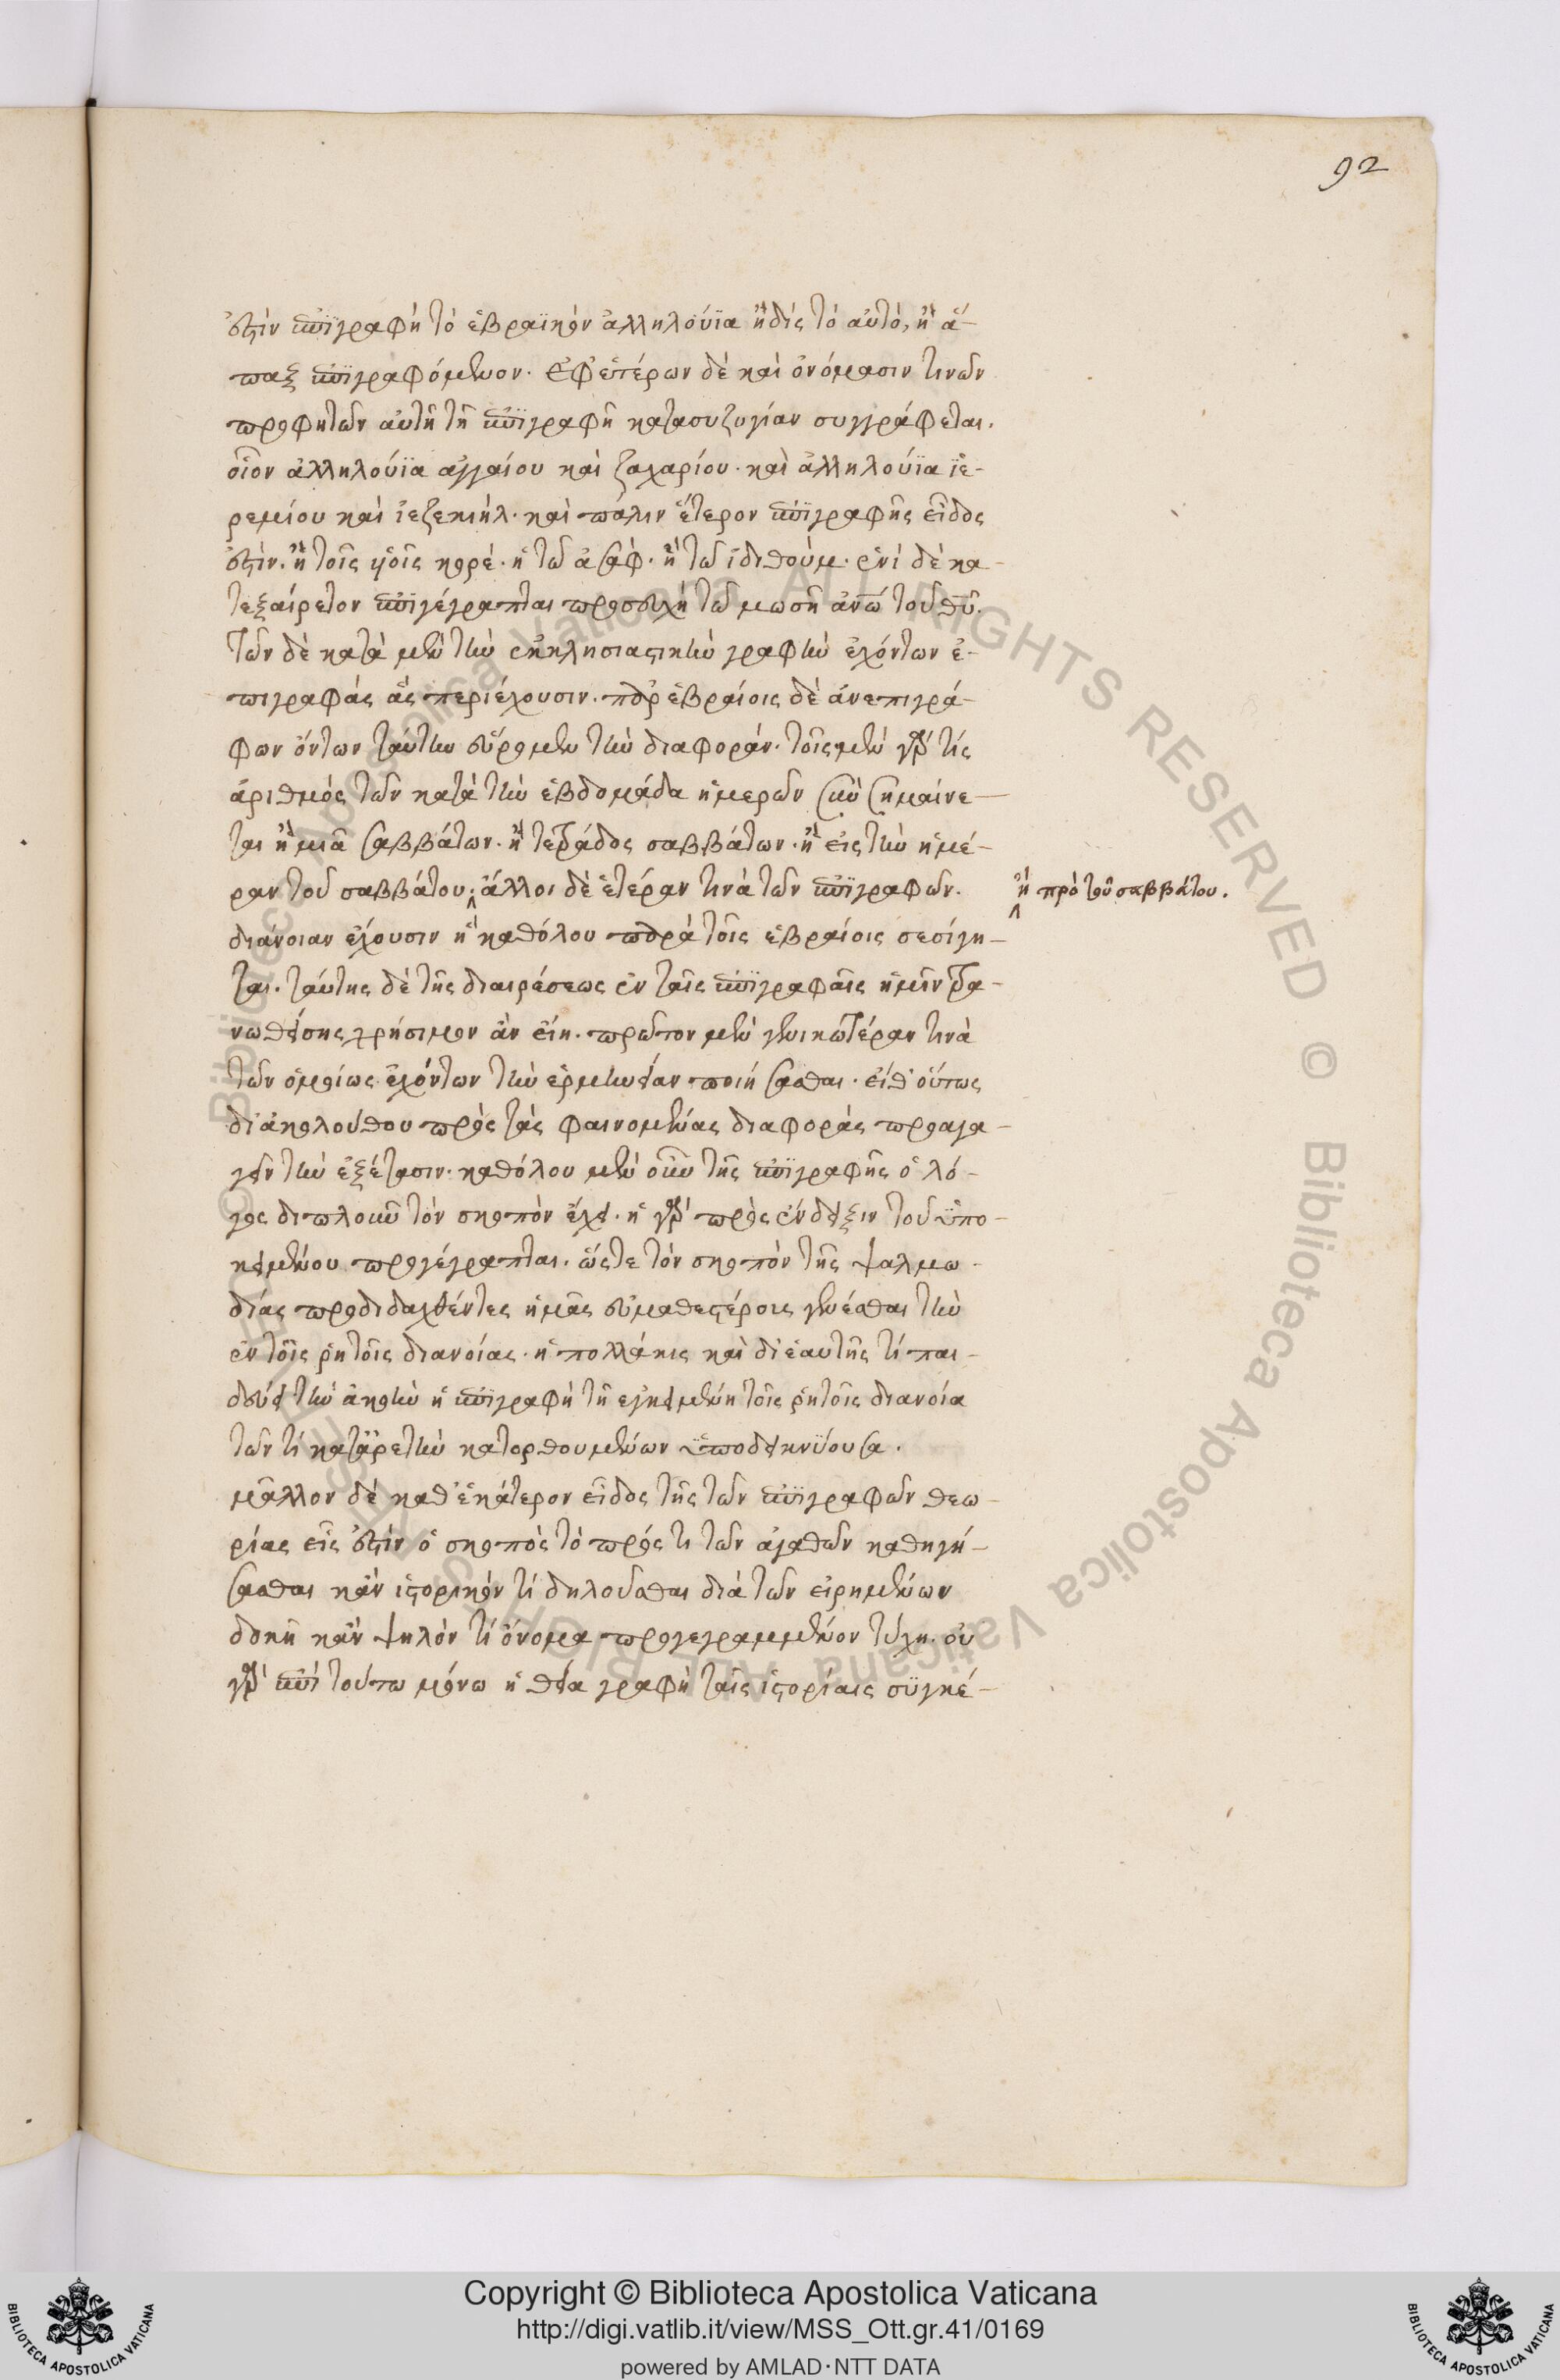 92
ἐστὶν ἐπϊγραφὴ τὸ ἑβραϊκὸν ἀλληλούϊα ἢ δὶς τὸ αὐτὸ, ἢ ἅ-
παξ ἐπϊγραφόμενον. ἐφ' ἑτέρων δὲ καὶ ὀνόμασιν τινῶν
προφητῶν αὐτῆ τῆ ἐπϊγραφῆ κατασυζυγίαν συγγράφεται.
οἷον ἀλληλούϊα ἀγγαίου καὶ ζαχαρίου. καὶ ἀλληλούϊα ϊε-
ρεμίου καὶ ἰεζεκιήλ. καὶ πάλιν ἕτερον ἐπϊγραφῆς εἶδος
ἐστὶν. ἢ τοῖς υἱοῖς κορέ. ἢ τῶ ἀσάφ. ἢ τῶ ἰδιθούμ. ἑνὶ δὲ κα-
τεξαίρετον ἐπϊγέγραπται προσευχὴ τῶ μωσῆ ἀνῶ τοῦ θῦ.
τῶν δὲ κατὰ μὲν τὴν ἐκκλησιαστικὴν γραφὴν ἐχόντων ἐ-
πιγραφάς ἃς περιέχουσιν. παρ' ἑβραίοις δὲ ἀνεπιγρά-
φων ὄντων ταύτην εὕρομεν τὴν διαφοράν. τοῖς μὲν γὰρ τίς
ἀριθμὸς τῶν κατὰ τὴν ἑβδομάδα ἡμερῶν συσσημαίνε-
ται ἢ μιᾶ σαββάτων. ἢ τετράδος σαββάτων. ἢ εἰς τὴν ἡμέ-
ραν τοῦ σαββάτου. ἄλλοι δὲ ἑτέραν τινὰ τῶν ἐπϊγραφῶν.
ἢ πρὸ τοῦ σαββάτου.
διάνοιαν ἔχουσιν ἣ καθόλου παρὰ τοῖς ἑβραίοις σεσίγη-
ται. ταύτης δὲ τῆς διαιρέσεως ἐν ταῖς ἐπϊγραφαῖς ἡμῖν τρα-
νωθείσης χρήσιμον ἂν εἴη. πρῶτον μὲν γενικωτέραν τινὰ
τῶν ὁμοίως ἐχόντων τὴν ἑρμηνείαν ποιήσασθαι. εἴθ' οὕτως
δι' ἀκολούθου πρὸς τὰς φαινομένας διαφορὰς προαγα-
γεῖν τὴν ἐξέτασιν. καθόλου μὲν οὖν τῆς ἐπϊγραφῆς ὁ λό-
γος διπλοῦν τὸν σκοπὸν ἔχει. ἢ γὰρ πρὸς ἔνδειξιν τοῦ ὑπο-
κειμένου προγέγραπται. ὥστε τὸν σκοπὸν τῆς ψαλμω-
δίας προδιδαχθέντες ἡμᾶς εὐμαθεστέροις γενέσθαι τὴν
ἐν τοῖς ῥητοῖς διανοίας. ἢ πολλάκις καὶ δι' ἑαυτῆς τί παι-
δεύει τὴν ἀκοὴν ἡ ἐπϊγραφὴ τῆ ἐγκειμένη τοῖς ῥητοῖς διανοία
τῶν τί κατ' ἀρετὴν κατορθουμένων ὑποδεικνύουσα.
μᾶλλον δὲ καθ' ἑκάτερον εἶδος τῆς τῶν ἐπϊγραφῶν θεω-
ρίας εἷς ἐστὶν ὁ σκοπὸς τὸ πρός τι τῶν ἀγαθῶν καθηγή-
σασθαι κἂν ἱστορικόν τί δηλοῦσθαι διὰ τῶν εἰρημένων
δοκῆ κἂν ψηλὸν τί ὄνομα προγεγραμμένον τύχη. οὐ
γὰρ ἐπὶ τούτω μόνω ἡ θεία γραφὴ ταῖς ἱστορίαις σϋγκέ-
Copyright © Biblioteca Apostolica Vaticana
http://digi.vatlib.it/view/MSS_Ott.gr.41/0169
powered by AMLAD·NTT DATA
BIBLIOTECA APOSTOLICA VATICANA
BIBLIOTECA APOSTOLICA VATICANA
© Biblioteca Apostolica Vaticana ALL RIGHTS RESERVED © Biblioteca Apostolica Vaticana ALL RIGHTS RESERVED